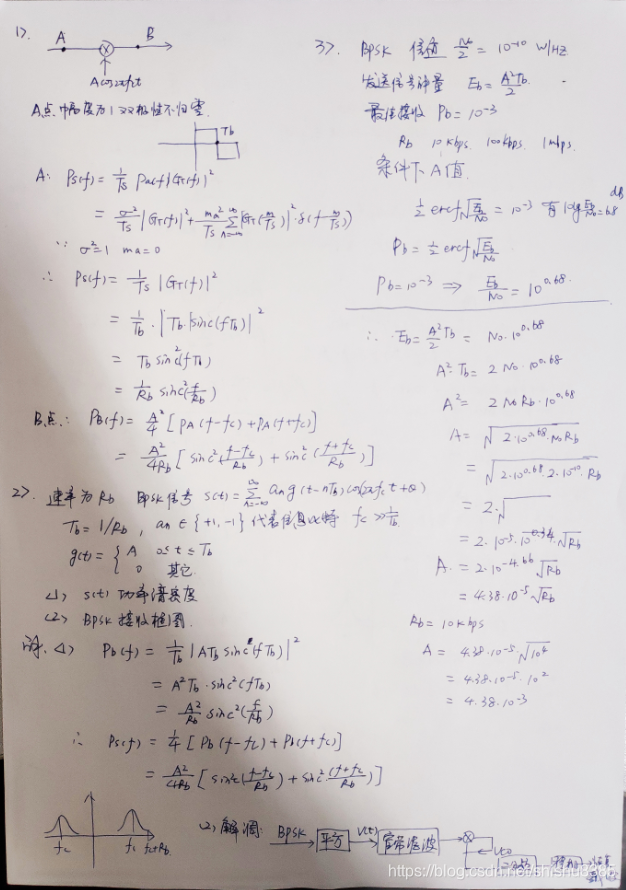 1>.
A B
Acos2πfct
A点幅度为1双极性不归零.
Tb
A: Ps(f) = 1/Ts Pa(f)|GT(f)|²
= σ²/Ts |GT(f)|² + ma²/Ts Σ|GT(n/Ts)|²·δ(f-n/Ts)
∵ σ²=1 ma=0
∴ Ps(f) = 1/Ts |GT(f)|²
= 1/Tb·|Tb·sinc(fTb)|²
= Tb sinc²(fTb)
= 1/Rb sinc²(f/Rb)
B点: PB(f) = A²/4 [PA(f-fc)+PA(f+fc)]
= A²/4Rb [sinc²(f-fc/Rb) + sinc²(f+fc/Rb)]
2>. 速率为Rb BPSK信号 s(t)=Σ an g(t-nTb)cos(2πfct+θ)
Tb=1/Rb, an∈{+1,-1}代表信息比特 fc≫1/Tb
g(t)={A 0≤t≤Tb
0 其它.
<1> s(t)功率谱密度
(2) BPSK 接收框图.
解. <1> Pb(f) = 1/Tb |ATb sinc(fTb)|²
= A²Tb·sinc²(fTb)
= A²/Rb sinc²(f/Rb)
∴ Ps(f) = 1/4 [Pb(f-fc)+Pb(f+fc)]
= A²/4Rb [sinc²(f-fc/Rb) + sinc²(f+fc/Rb)]
fc fc fc+Rb.
(2) 解调: BPSK 平方 V(t) 窄带滤波
3>. BPSK N0/2 = 10^-10 W/HZ
发送信号能量 Eb = A²Tb/2
最佳接收 Pb = 10^-3
Rb 10kbps. 100kbps. 1mbps.
条件下A值.
1/2 erfc√(Eb/N0) = 10^-3 有10lgEb/N0=6.8 dB
Pb = 1/2 erfc√(Eb/N0)
Pb=10^-3 ⟹ Eb/N0 = 10^0.68
∴ Eb = A²Tb/2 = N0·10^0.68
A²·Tb = 2N0·10^0.68
A² = 2N0Rb·10^0.68
A = √(2·10^0.68·N0Rb)
= √(2·10^0.68·2·10^-10·Rb)
= 2·√
= 2·10^-5·10^0.34·√Rb
A = 2·10^-4.66 √Rb
= 4.38·10^-5 √Rb
Rb = 10kbps
A = 4.38·10^-5·√10^4
= 4.38·10^-5·10²
= 4.38·10^-3
https://blog.csdn.net/shishu8385